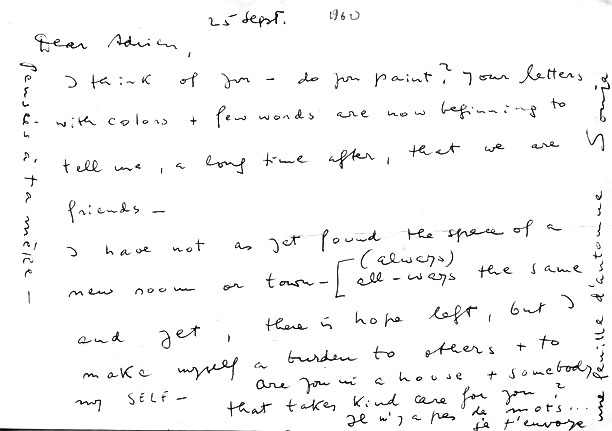 25 Sept. 1960
Dear Adrien,
I think of you - do you paint? your letters
with colors + few words are now beginning to
tell me, a long time after, that we are
friends -
I have not as yet found the space of a
new room or town - [ (always)
all-ways the same
and yet, there is hope left, but I
make myself a burden to others + to
my SELF - are you in a house + somebody
that takes kind care for you?
Il n'y a pas de mots...
je t'envoye
une feuille d'automne
Sonja
Pensées à ta mère -